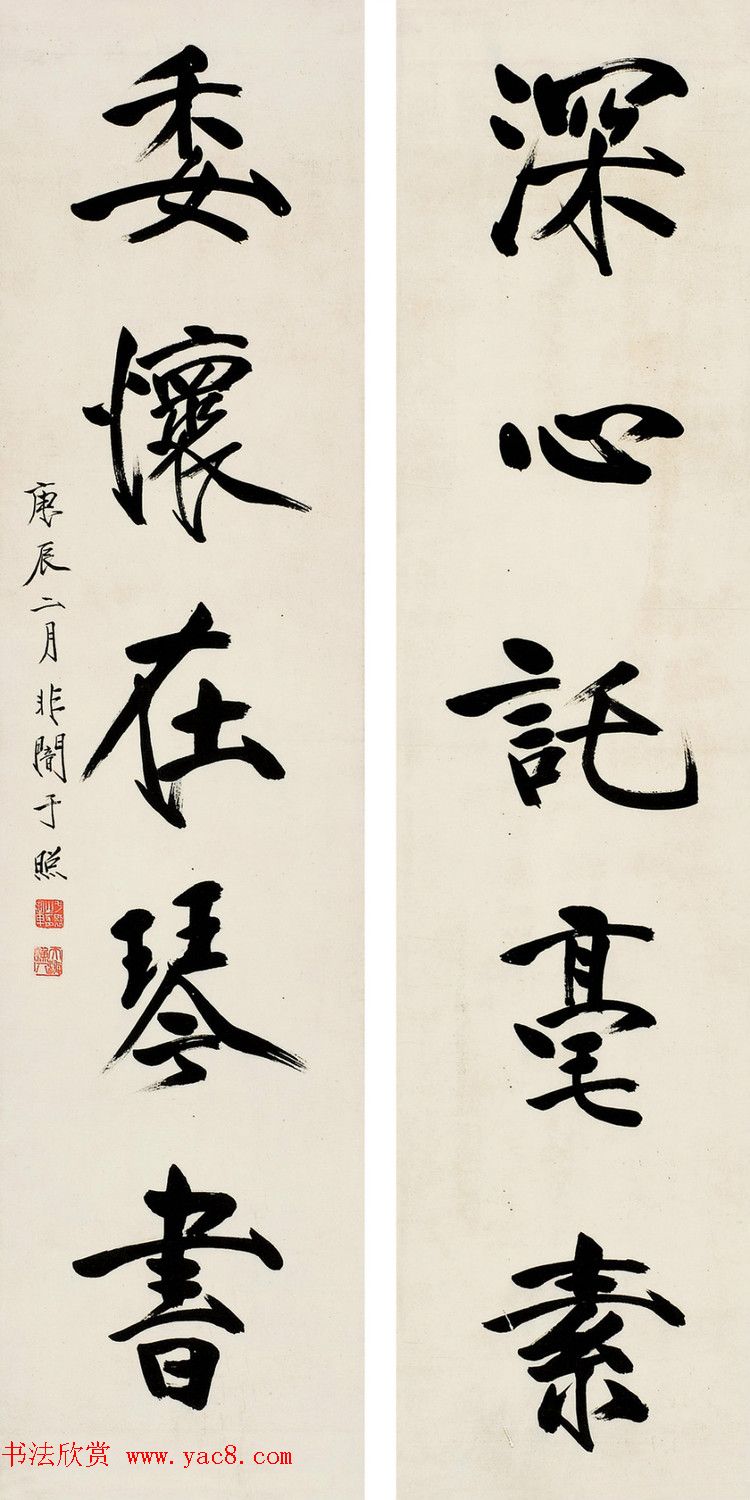 深心託毫素
委懷在琴書
庚辰二月非闇于照
书法欣赏 www.yac8.com